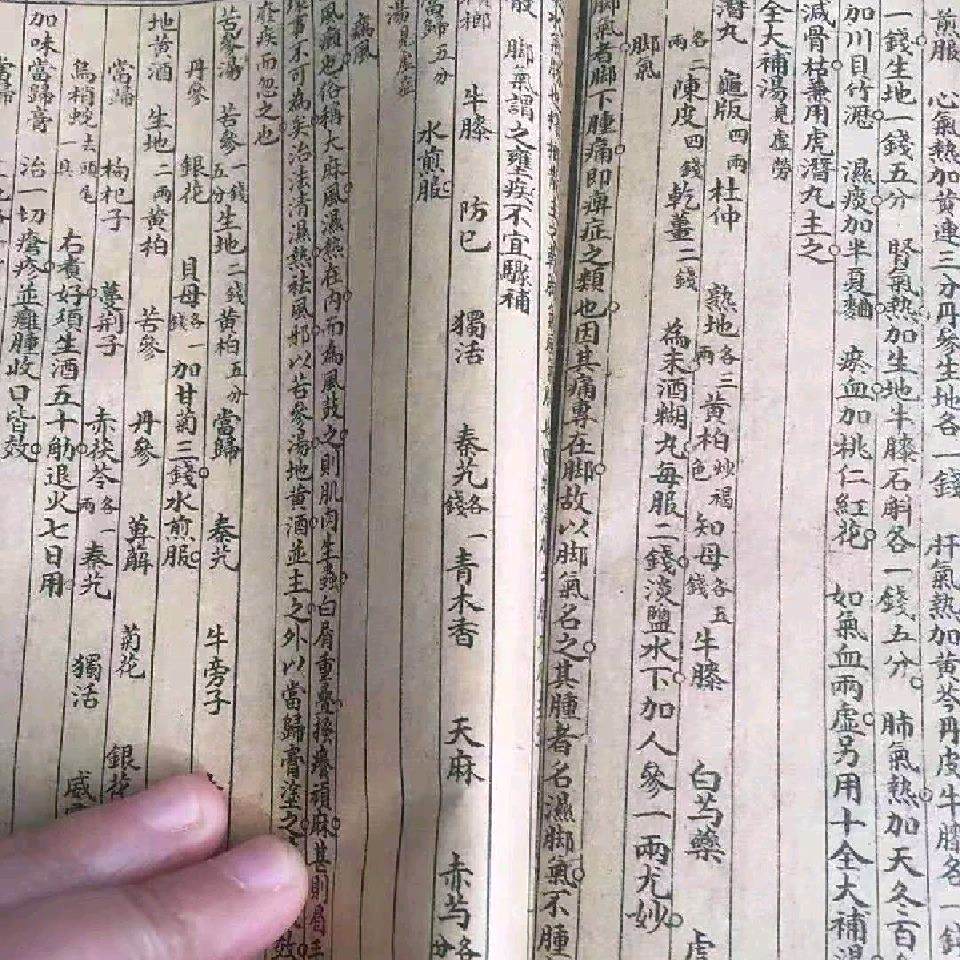 煎服 心氣熱加黃連三分丹參生地各一錢 肝氣熱加黃芩丹皮牛膝各一錢
一錢生地一錢五分 腎氣熱加生地牛膝石斛各一錢五分 肺氣熱加天冬百
加川貝竹瀝 濕痰加半夏麯 瘀血加桃仁紅花 如氣血兩虛另用十全大補湯
減骨枯兼用虎潛丸主之
全大補湯見虛勞
潛丸 龜版四兩 杜仲 熟地各三兩 黃柏炒褐色 知母各五錢 牛膝 白芍藥 虎
各二兩 陳皮四錢 乾薑二錢 為末酒糊丸每服二錢淡鹽水下加人參一兩尤妙
脚氣
脚氣者脚下腫痛即痹症之類也因其痛專在脚故以脚氣名之其腫者名濕脚氣不腫
脚氣謂之壅疾不宜驟補
散
榔 牛膝 防已 獨活 秦艽各一錢 青木香 天麻 赤芍各 分
當歸五分 水煎服
湯見虛症
癘風
風癩也俗稱大麻風濕熱在內而為風鼓之則肌肉生蟲白屑重疊搔癢頑麻甚則眉
壞事不可為矣治法清濕熱祛風邪以苦參湯地黃酒並主之外以當歸膏塗之 效
疾而忽之也
苦參湯 苦參一錢五分 生地二錢 黃柏五分 當歸 秦艽 牛旁子
丹參 銀花 貝母各一錢 加甘菊三錢水煎服
地黃酒 生地二兩 黃柏 苦參 丹參 萆薢 菊花 銀花
當歸 枸杞子 蔓荆子 赤茯苓各一兩 秦艽 獨活 威
烏梢蛇去頭尾一具 右煮好須生酒五十觔退火七日用
加味當歸膏 治一切瘡疹並癰腫收口皆效
當歸